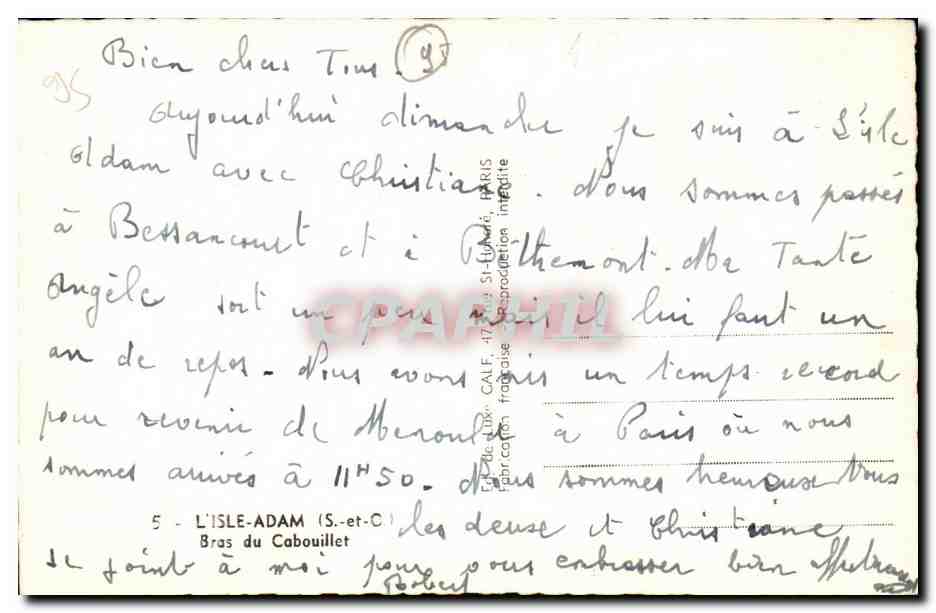 Bien chers Tous. 95
95
Aujourd'hui dimanche je suis à L'isle
Adam avec Christiane. Nous sommes passés
à Bessancourt et à Béthemont. Ma Tante
Angèle sort un peu mais il lui faut un
an de repos. Nous avons mis un temps record
pour revenir de à Paris où nous
sommes arrivés à 11H50. Nous sommes heureux Vous
les deux et Christiane
se joint à moi pour vous embrasser bien
Robert
5 - L'ISLE-ADAM (S.-et-O)
Bras du Cabouillet
Ed. "de Luxe" CALF, 47 Rue St-Honoré, PARIS
Fabrication française - Reproduction interdite
CPAPHIL